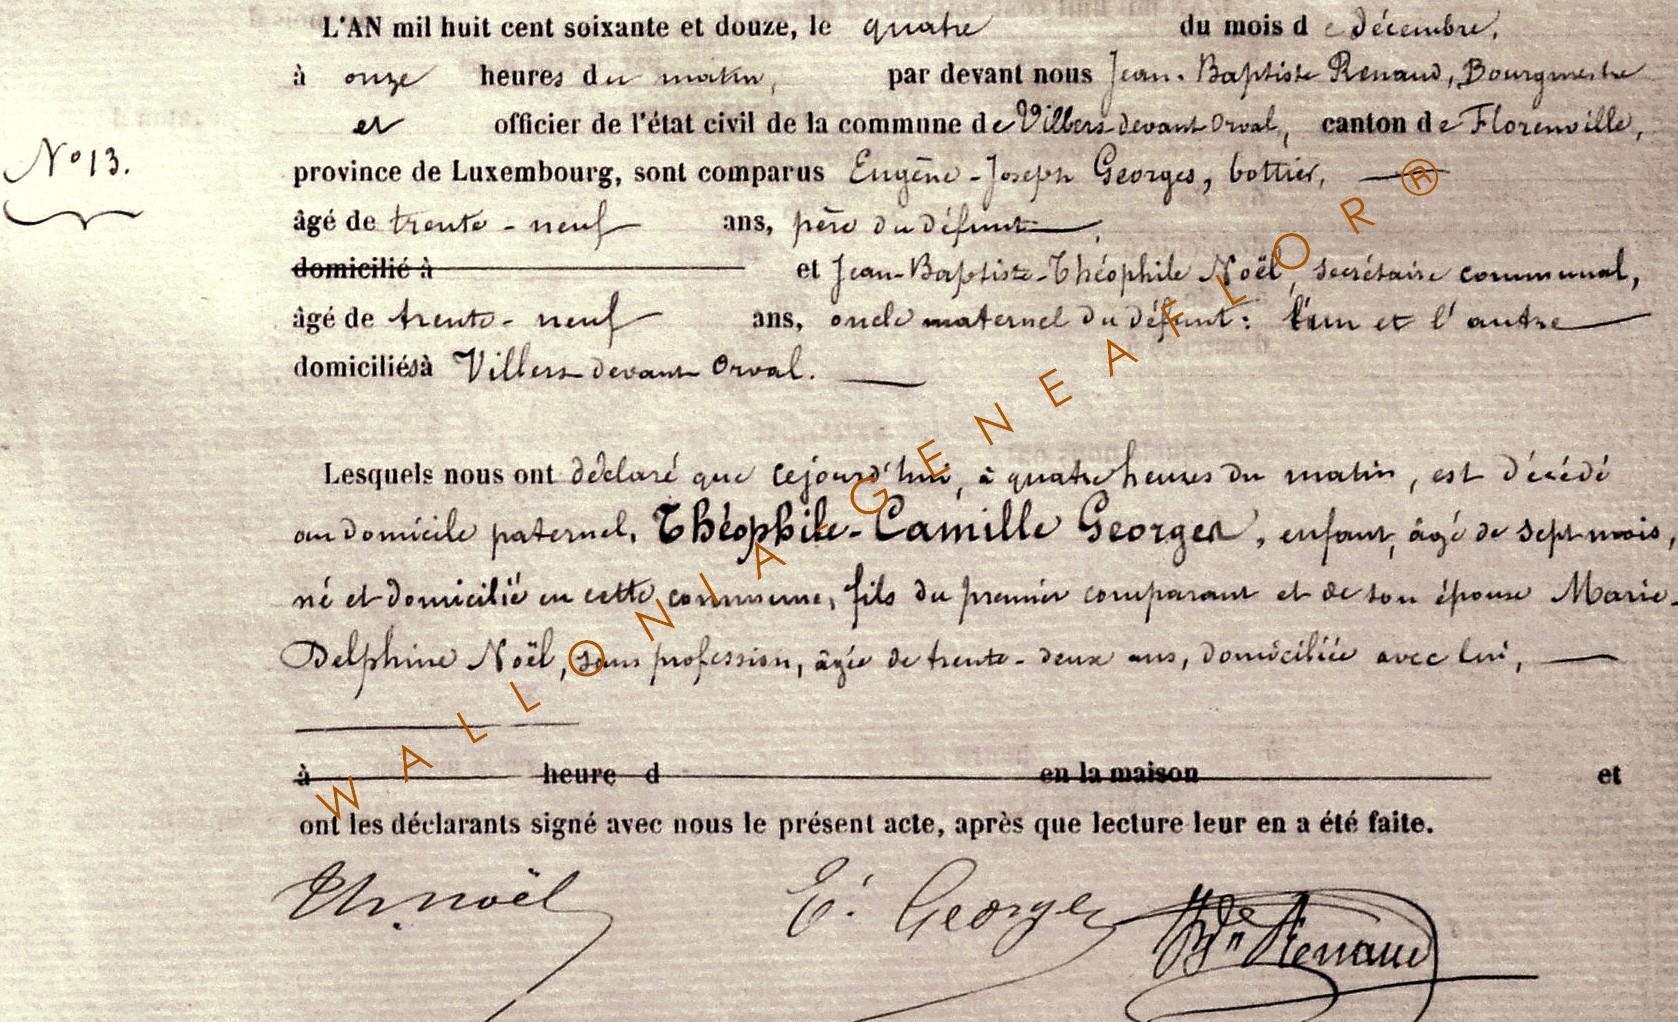 L'AN mil huit cent soixante et douze, le quatre du mois de décembre,
à onze heures du matin, par devant nous Jean-Baptiste Renaud, Bourgmestre
et officier de l'état civil de la commune de Villers devant Orval, canton de Florenville,
N° 13.
province de Luxembourg, sont comparus Eugène-Joseph Georges, bottier,
âgé de trente-neuf ans, père du défunt,
domicilié à et Jean-Baptiste-Théophile Noël, secrétaire communal,
âgé de trente-neuf ans, oncle maternel du défunt: l'un et l'autre
domiciliés à Villers devant Orval.
Lesquels nous ont déclaré que cejourd'hui, à quatre heures du matin, est décédé
au domicile paternel, Théophile-Camille Georges, enfant, âgé de sept mois,
né et domicilié en cette commune, fils du premier comparant et de son épouse Marie-
Delphine Noël, sans profession, âgée de trente-deux ans, domiciliée avec lui,
à heure d en la maison et
ont les déclarants signé avec nous le présent acte, après que lecture leur en a été faite.
Th. Noël E. Georges Renaud
WALLONIA-GENEAFLOR®